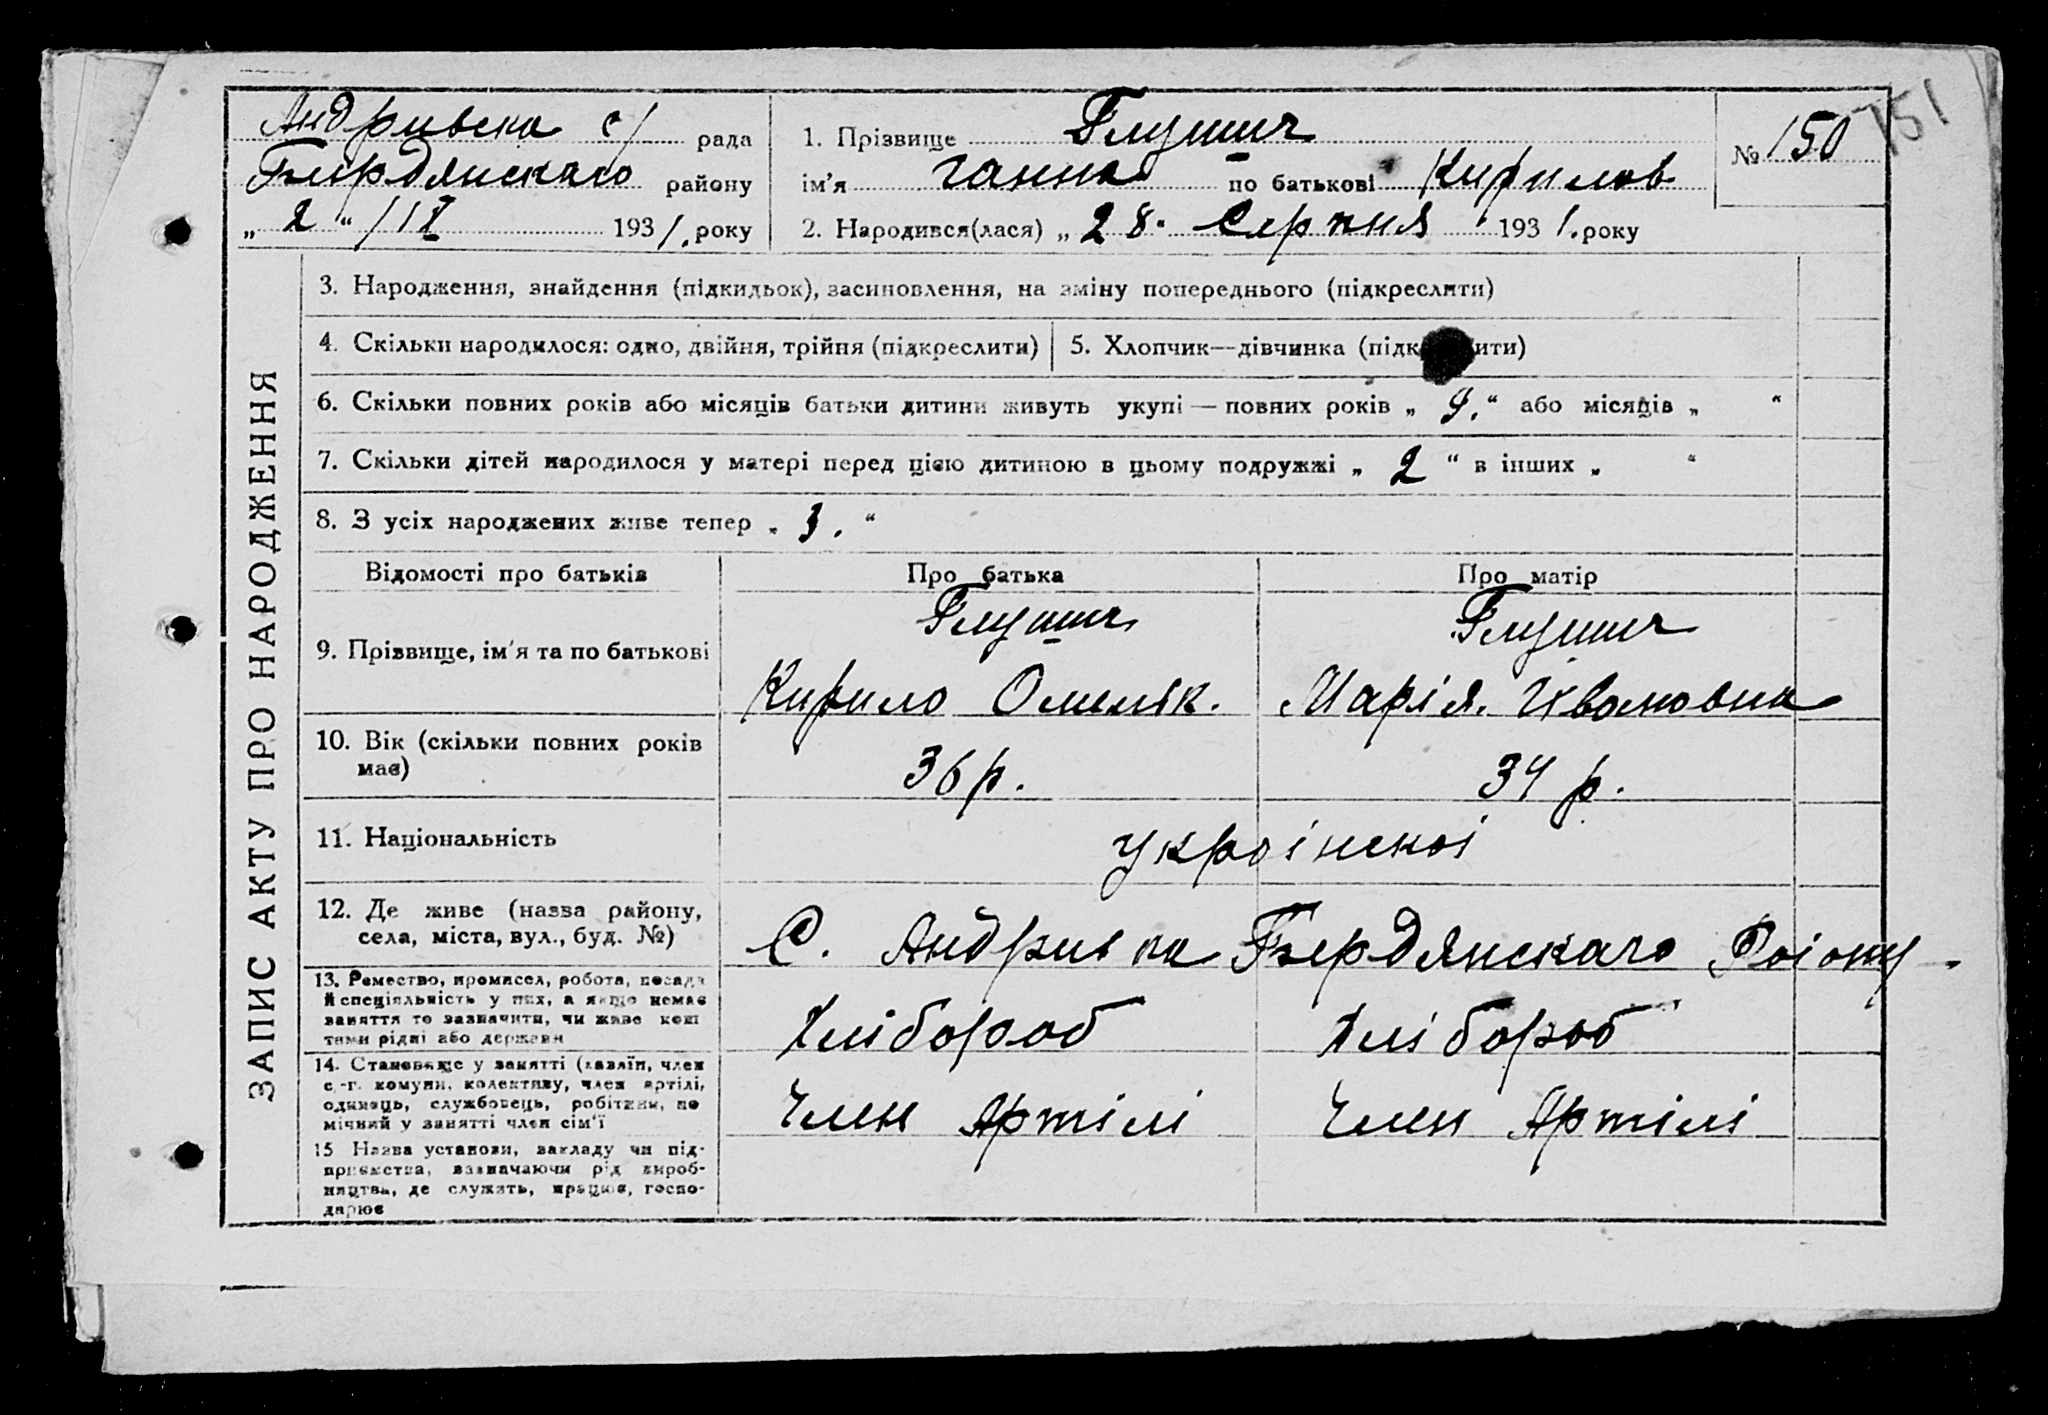 Андривска с/ рада
Бирдянскаго району
„ 2 “ / IX 1931. року
1. Прізвище Глушич
ім’я Ганна по батькові Кирилов
2. Народився(лася) „ 28. Серпня 1931. року
№ 150
151
ЗАПИС АКТУ ПРО НАРОДЖЕННЯ
3. Народження, знайдення (підкидьок), засиновлення, на зміну попереднього (підкреслити)
4. Скільки народилося: одно, двійня, трійня (підкреслити)
5. Хлопчик—дівчинка (підк ити)
6. Скільки повних років або місяців батьки дитини живуть укупі — повних років „ 9. “ або місяців „ “
7. Скільки дітей народилося у матері перед цією дитиною в цьому подружжі „ 2 “ в інших „ “
8. З усіх народжених живе тепер „ 3. “
Відомості про батьків
Про батька
Про матір
9. Прізвище, ім’я та по батькові
Глушич
Кирило Омельк.
Глушич
Марія. Ивановна
10. Вік (скільки повних років
має)
36 р.
34 р.
11. Національність
украінскоі
12. Де живе (назва району,
села, міста, вул., буд. №)
С. Андривка Бердянскаго Роіону
13. Ремество, промисел, робота, посада
й спеціяльність у них, а якщо немає
заняття то зазначити, чи живе кош
тами рідні або держави
Хлібороб
Хлібороб
14. Становище у занятті (хазяїн, член
с.-г. комуни, колективу, член артілі,
одинець, службовець, робітник, по
мічний у занятті член сім’ї
Член Артілі
Член Артілі
15 Назва установи, закладу чи під-
приємства, зазначаючи рід вироб-
ництва, де служить, працює, госпо-
дарює